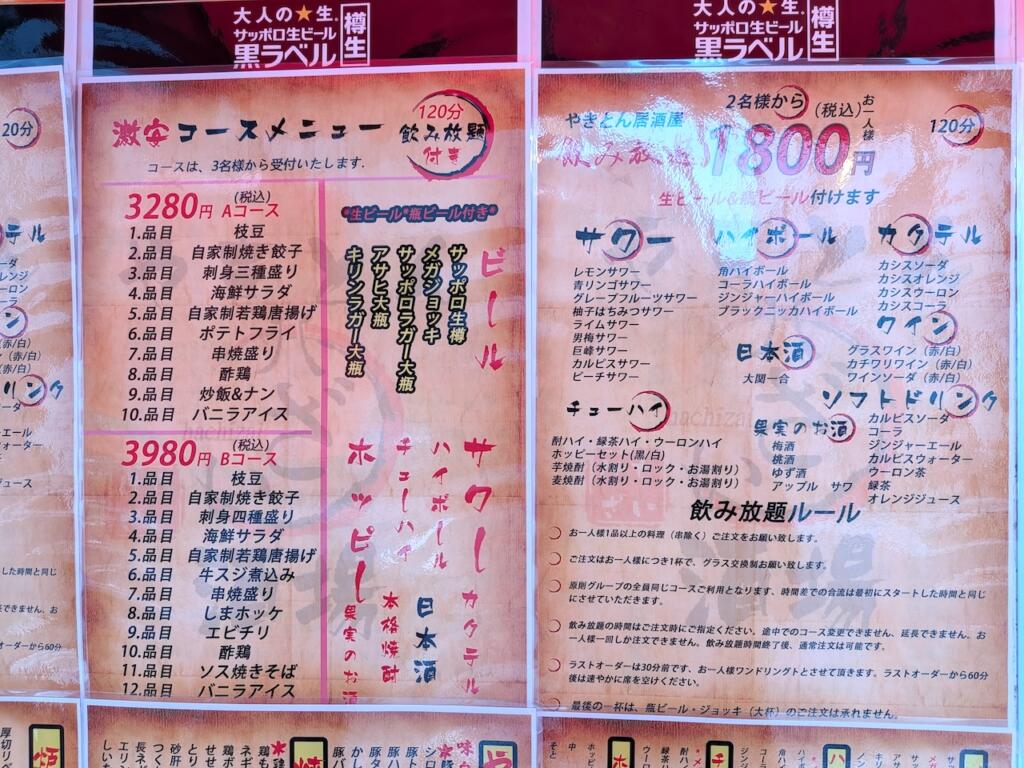 大人の★生。
サッポロ生ビール
黒ラベル
樽生
激安コースメニュー
120分
飲み放題
付き
コースは、3名様から受付いたします.
3280円 (税込) Aコース
1.品目 枝豆
2.品目 自家制焼き餃子
3.品目 刺身三種盛り
4.品目 海鮮サラダ
5.品目 自家制若鶏唐揚げ
6.品目 ポテトフライ
7.品目 串焼盛り
8.品目 酢鶏
9.品目 炒飯&ナン
10.品目 バニラアイス
3980円 (税込) Bコース
1.品目 枝豆
2.品目 自家制焼き餃子
3.品目 刺身四種盛り
4.品目 海鮮サラダ
5.品目 自家制若鶏唐揚げ
6.品目 牛スジ煮込み
7.品目 串焼盛り
8.品目 しまホッケ
9.品目 エビチリ
10.品目 酢鶏
11.品目 ソス焼きそば
12.品目 バニラアイス
*生ビール*瓶ビール付き*
ビール
サッポロ生樽
メガジョッキ
サッポロラガー大瓶
アサヒ大瓶
キリンラガー大瓶
サワー
カクテル
ハイボール
日本酒
チューハイ
本格焼酎
ホッピー
果実のお酒
大人の★生。
サッポロ生ビール
黒ラベル
樽生
やきとん居酒屋
2名様から
(税込)
お一人様
120分
飲み放題
1800円
生ビール&瓶ビール付けます
サワー
レモンサワー
青リンゴサワー
グレープフルーツサワー
柚子はちみつサワー
ライムサワー
男梅サワー
巨峰サワー
カルピスサワー
ピーチサワー
ハイボール
角ハイボール
コーラハイボール
ジンジャーハイボール
ブラックニッカハイボール
カクテル
カシスソーダ
カシスオレンジ
カシスウーロン
カシスコーラ
ワイン
グラスワイン (赤/白)
カチワリワイン (赤/白)
ワインソーダ (赤/白)
日本酒
大関一合
チューハイ
酎ハイ・緑茶ハイ・ウーロンハイ
ホッピーセット(黒/白)
芋焼酎 (水割り・ロック・お湯割り)
麦焼酎 (水割り・ロック・お湯割り)
果実のお酒
梅酒
桃酒
ゆず酒
アップル サワ
ソフトドリンク
カルピスソーダ
コーラ
ジンジャーエール
カルピスウォーター
ウーロン茶
緑茶
オレンジジュース
飲み放題ルール
お一人様1品以上の料理 (串除く) ご注文をお願い致します。
ご注文はお一人様につき1杯で、グラス交換制お願い致します。
原則グループの全員同じコースご利用となります、時間差での合流は最初にスタートした時間と同じ
にさせていただきます。
飲み放題の時間はご注文時にご指定ください。途中でのコース変更できません、延長できません、お
一人様一回しか注文できません。飲み放題時間終了後、通常注文は可能です。
ラストオーダーは30分前です、お一人様ワンドリングトとさせて頂きます。ラストオーダーから60分
後は速やかに席を空けください。
最後の一杯は、瓶ビール・ジョッキ (大杯) のご注文は承れません。